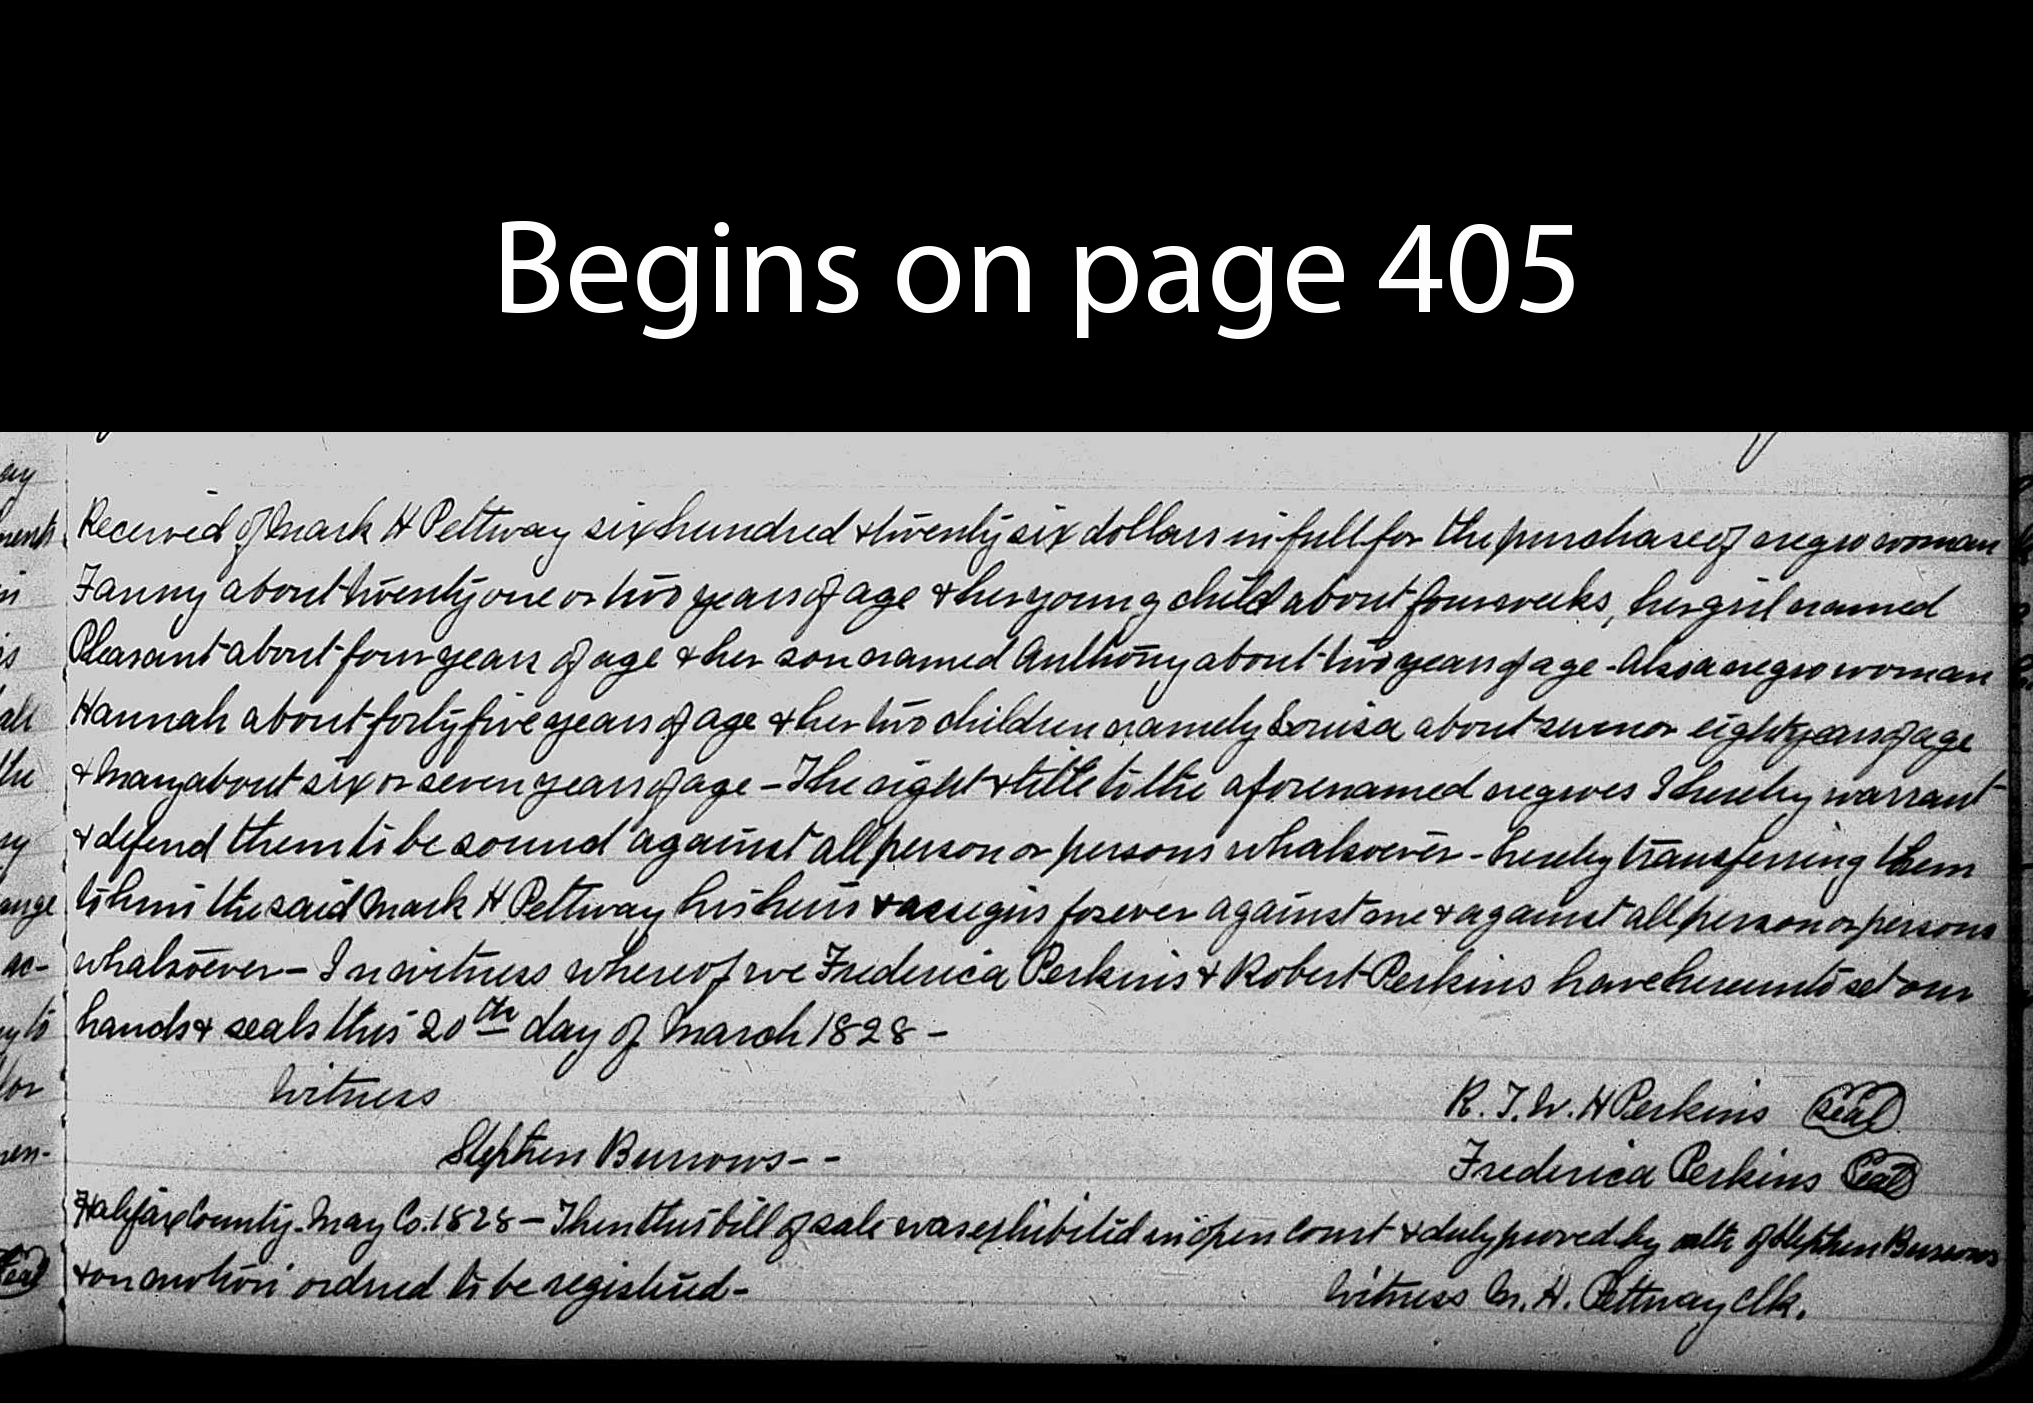 Begins on page 405
Received of Mark H Pettway six hundred & twenty six dollars in full for the purchase of negro woman
Fanny about twenty one or two years of age & her young child about four weeks, her girl named
Pleasant about four years of age & her son named Anthony about two years of age - Also a negro woman
Hannah about forty five years of age & her two children namely Louisa about seven or eight years of age
& Mary about six or seven years of age - The right & title to the aforenamed negroes I hereby warrant
& defend them to be sound against all person or persons whatsoever - hereby transferring them
to him the said Mark H Pettway his heirs & assigns forever against me & against all person or persons
whatsoever - In witness whereof we Frederica Perkins & Robert Perkins have hereunto set our
hands & seals this 20th day of March 1828 -
Witness
R. T. W. H Perkins Seal
Stephen Burrows - -
Frederica Perkins Seal
Halifax County. May Co. 1828 - Then this bill of sale was exhibited in open court & duly proved by oath of Stephen Burrows
& on motion ordred to be registered -
Witness M. H. Pettway Clk.